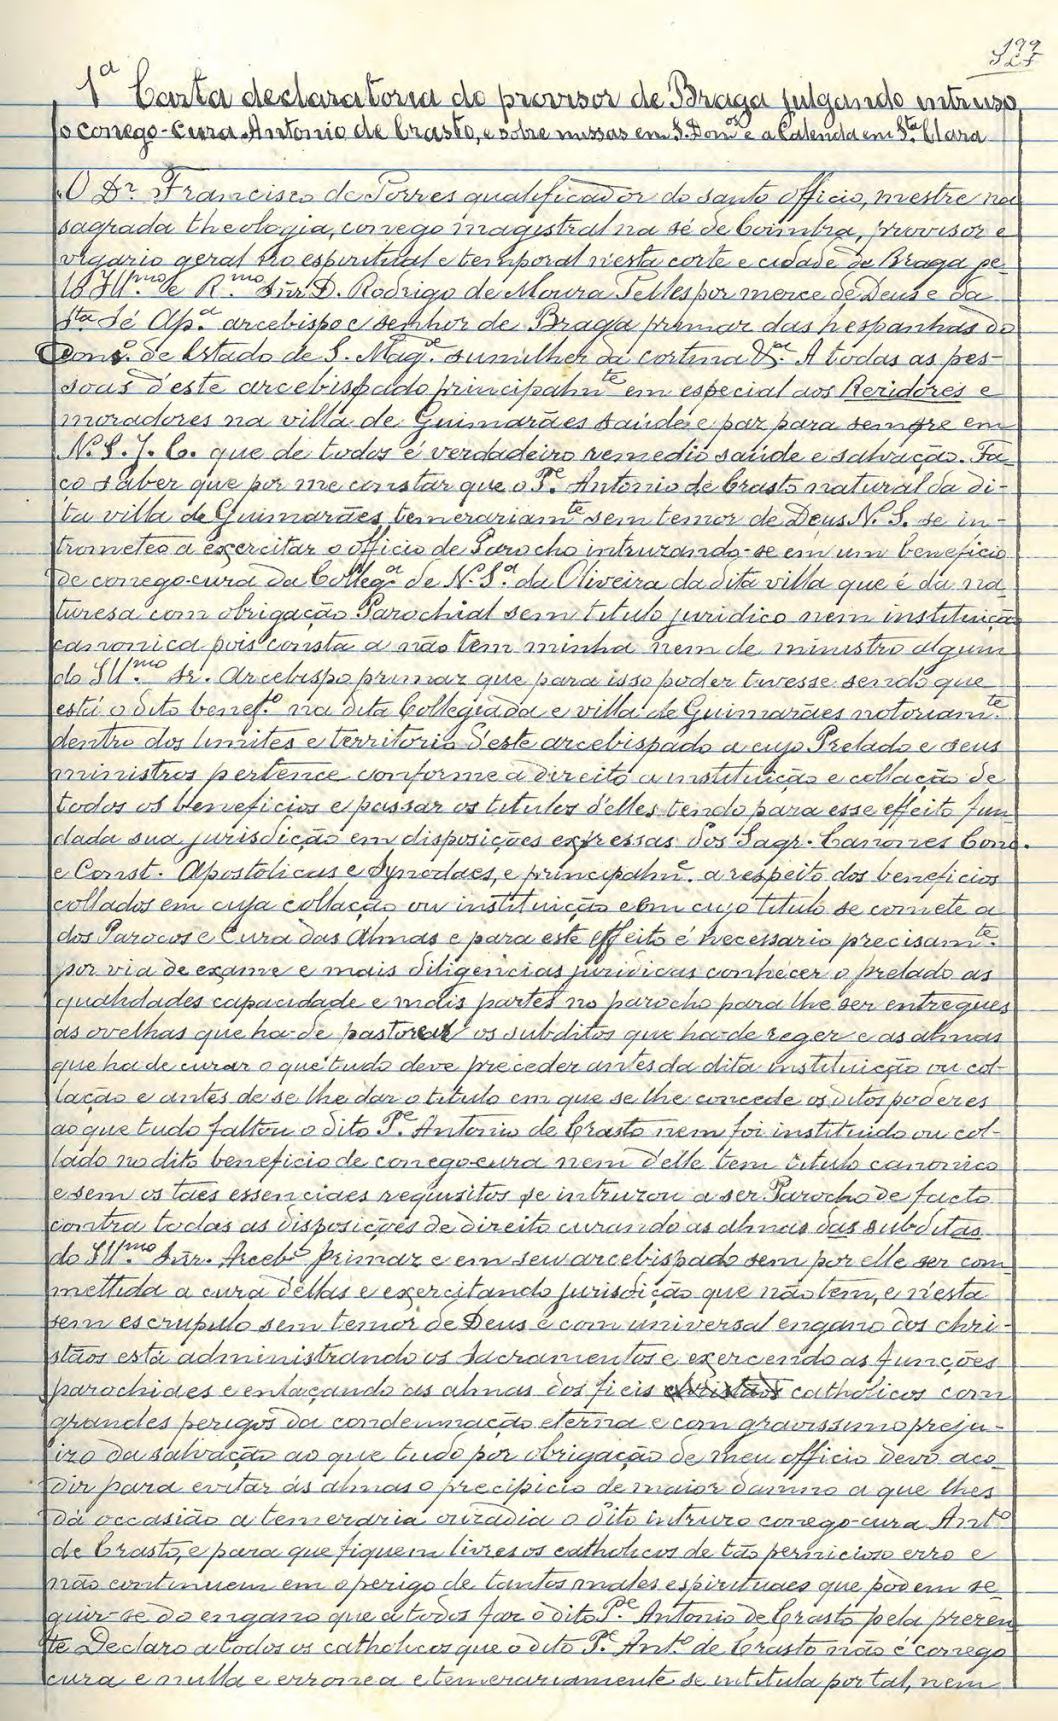 1ª Carta declaratoria do provisor de Braga julgando intruso
o conego-cura Antonio de Crasto, e sobre missas em S. Domos e a Calenda em Sta Clara
O Dr. Francisco de Torres qualificador do santo officio, mestre na
sagrada theologia, conego magistral na sé de Coimbra, provisor e
vigario geral no espiritual e temporal n'esta corte e cidade de Braga pe-
lo Illmo e Rmo Snr D. Rodrigo de Moura Telles por merce de Deus e da
Sta Sé Apa arcebispo e senhor de Braga primaz das hespanhas do
Conso. de Estado de S. Mage. sumilher da cortina &a. A todas as pes-
soas d'este arcebispado principalmte em especial aos Reridores e
moradores na villa de Guimarães saúde e paz para sempre em
N. S. J. C. que de todos é verdadeiro remedio saúde e salvação. Fa-
ço saber que por me constar que o Pe. Antonio de Crasto natural da di-
ta villa de Guimarães temerariamte sem temor de Deus N. S. se in-
trometeo a exercitar o officio de Parocho intruzando-se em um beneficio
de conego-cura da Collega de N. Sa da Oliveira da dita villa que é da na-
turesa com obrigação Parochial sem titulo juridico nem instituição
canonica pois consta a não tem minha nem de ministro algum
do Illmo sr. Arcebispo primaz que para isso poder tivesse sendo que
está o dito benefo na dita Collegiada e villa de Guimarães notoriamte
dentro dos limites e territorio d'este arcebispado a cujo Prelado e seus
ministros pertence conforme a direito a instituição e collação de
todos os beneficios e passar os titulos d'elles tendo para esse effeito fun-
dada sua jurisdicção em disposições expressas dos Sagr. Canones Conc.
e Const. Apostolicas e Synodaes, e principalme. a respeito dos beneficios
collados em cuja collação ou instituição e em cujo titulo se comete a
dos Parocos e Cura das Almas e para este effeito é necessario precisamte.
por via de exame e mais diligencias juridicas conhecer o prelado as
qualidades capacidade e mais partes no parocho para lhe ser entregues
as ovelhas que ha-de pastorear os subditos que ha-de reger e as almas
que ha de curar o que tudo deve preceder antes da dita instituicção ou col-
lação e antes de se lhe dar o titulo em que se lhe concede os ditos poderes
ao que tudo faltou o dito Pe. Antonio de Crasto nem foi instituido ou col-
lado no dito beneficio de conego-cura nem d'elle tem titulo canonico
e sem os taes essenciaes requisitos se intruzou a ser Parocho de facto
contra todas as disposições de direito curando as almas das subditas
do Illmo Snr. Arcebo primaz e em seu arcebispado sem por elle ser com-
mettida a cura d'ellas e exercitando jurisdição que não tem, e n'esta
sem escrupulo sem temor de Deus e com universal engano dos chri-
stãos está administrando os Sacramentos e exercendo as funções
parochiaes e enlaçando as almas dos fieis catholicos com
grandes perigos da condemnação eterna e com gravissimo preju-
izo da salvação ao que tudo por obrigação de meu officio devo aco-
dir para evitar ás almas o precipicio de maior damno a que lhes
dá occasião a temeraria ouzadia o dito intruzo conego-cura Anto
de Crasto, e para que fiquem livres os catholicos de tão pernicioso erro e
não continuem em o perigo de tantos males espirituaes que podem se-
guir-se do engano que a todos faz o dito Pe. Antonio de Crasto pela prezen
te Declaro a todos os catholicos que o dito Pe. Anto. de Crasto não é conego
cura e nulla e erronea e temerariamente se intitula por tal, nem